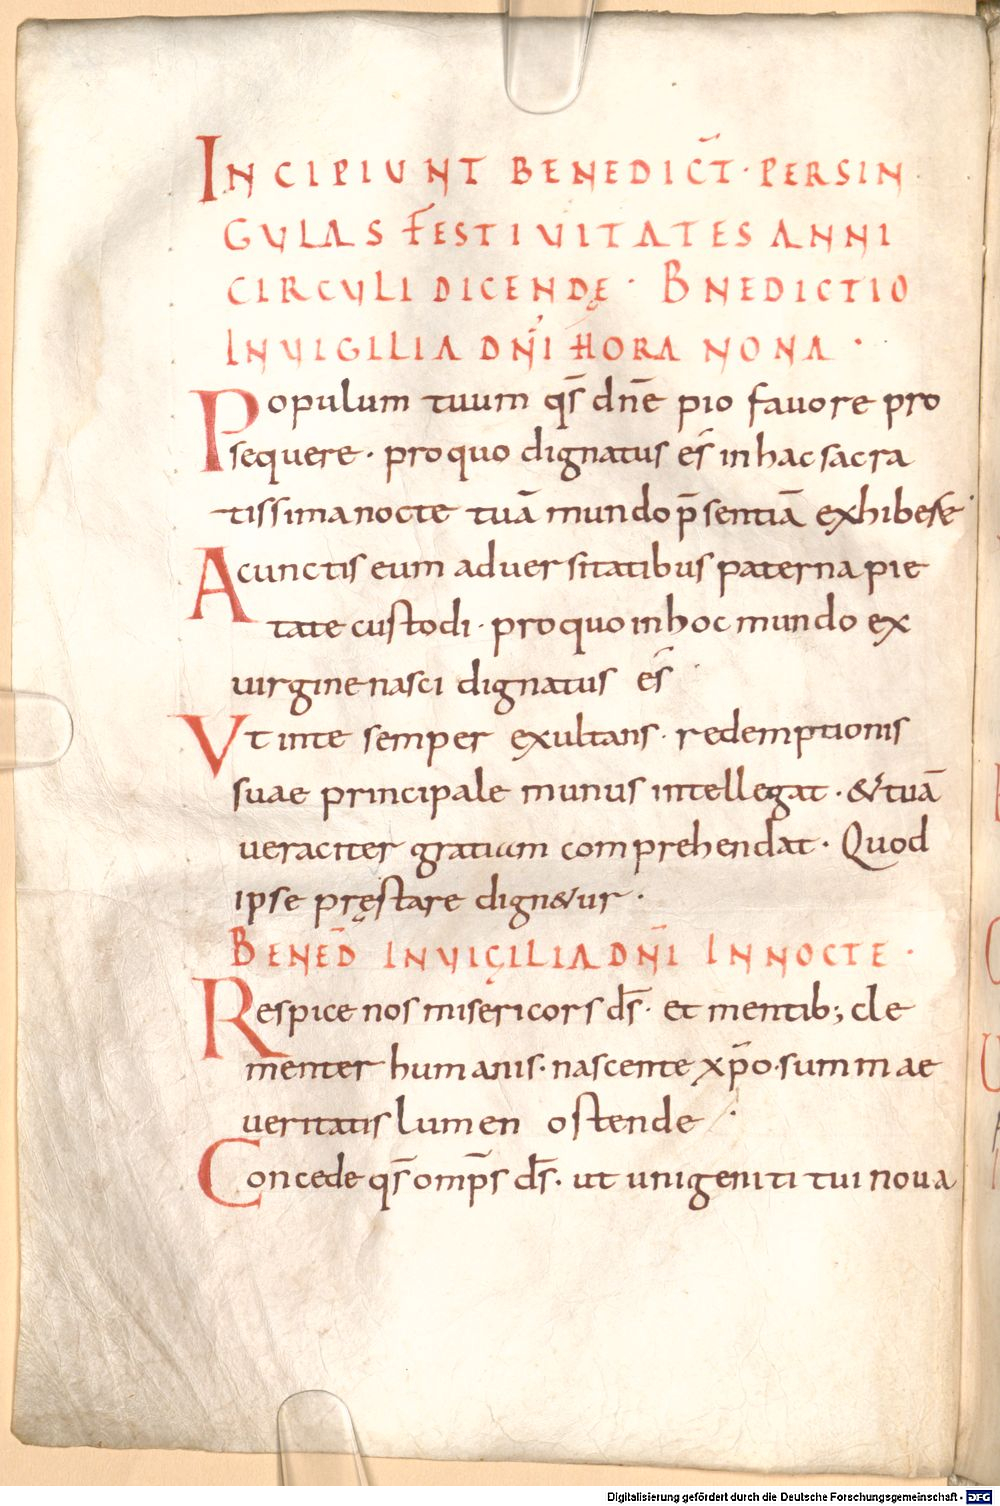 INCIPIUNT BENEDIC̄T · PER SIN
GULAS FESTIUITATES ANNI
CIRCULI DICENDĘ · BNEDICTIO
IN UIGILIA DN̄I HORA NONA ·
Populum tuum qs̄ dn̄e pio fauore pro
sequere · pro quo dignatus es̄ in hac sacra
tissima nocte tuā mundo p̄sentiā exhibere ·
A cunctis eum aduersitatibus paterna pie
tate custodi · pro quo in hoc mundo ex
uirgine nasci dignatus es̄ ·
Vt in te semper exultans · redemptionis
suae principale munus intellegat · & tuā
ueraciter gratiam comprehendat · Quod
ipse pręstare dign&ur ·
BENED̄ IN UIGILIA DN̄I IN NOCTE ·
Respice nos misericors ds̄ · et mentib; cle
menter humanis · nascente xp̄o · summae
ueritatis lumen ostende ·
Concede qs̄ omp̄s ds̄ · ut unigeniti tui noua
Digitalisierung gefördert durch die Deutsche Forschungsgemeinschaft - DFG